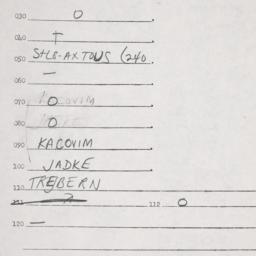 030 O
040 †
050 StLB-AXTOUS (240.
060 —
070 O
080 O
090 KACOVIM
100 JADKE
110 TREBERN
111 ? 112 O
120 —